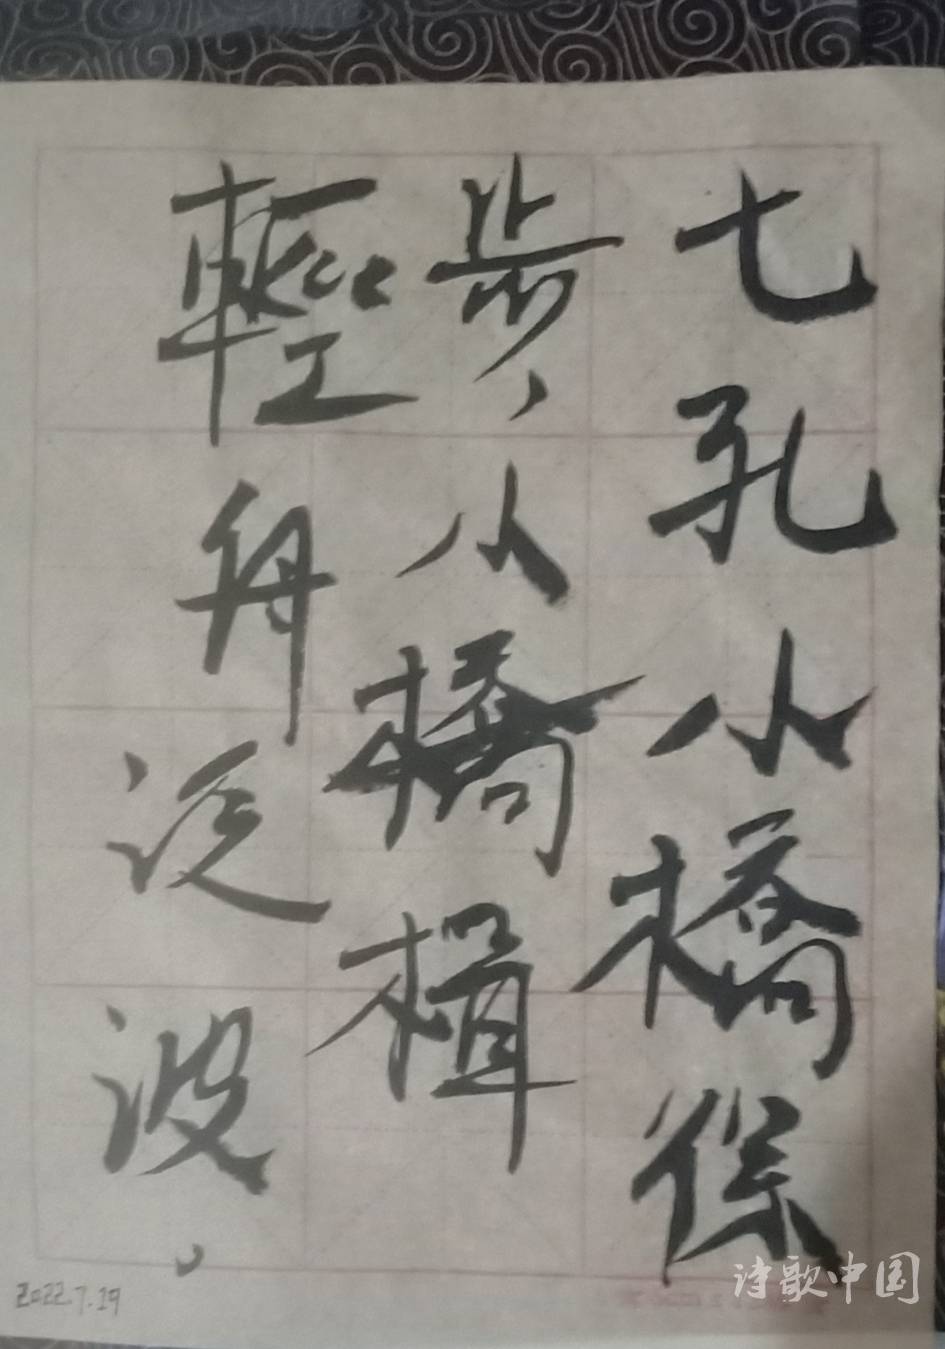 七孔小橋徐
步，小橋楫
輕舟泛波。
2022.7.19
诗歌中国